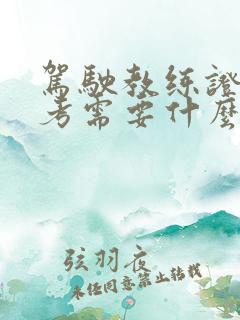 駕駛教練證
考需要什麼
弦羽夜
未經同意禁止轉載